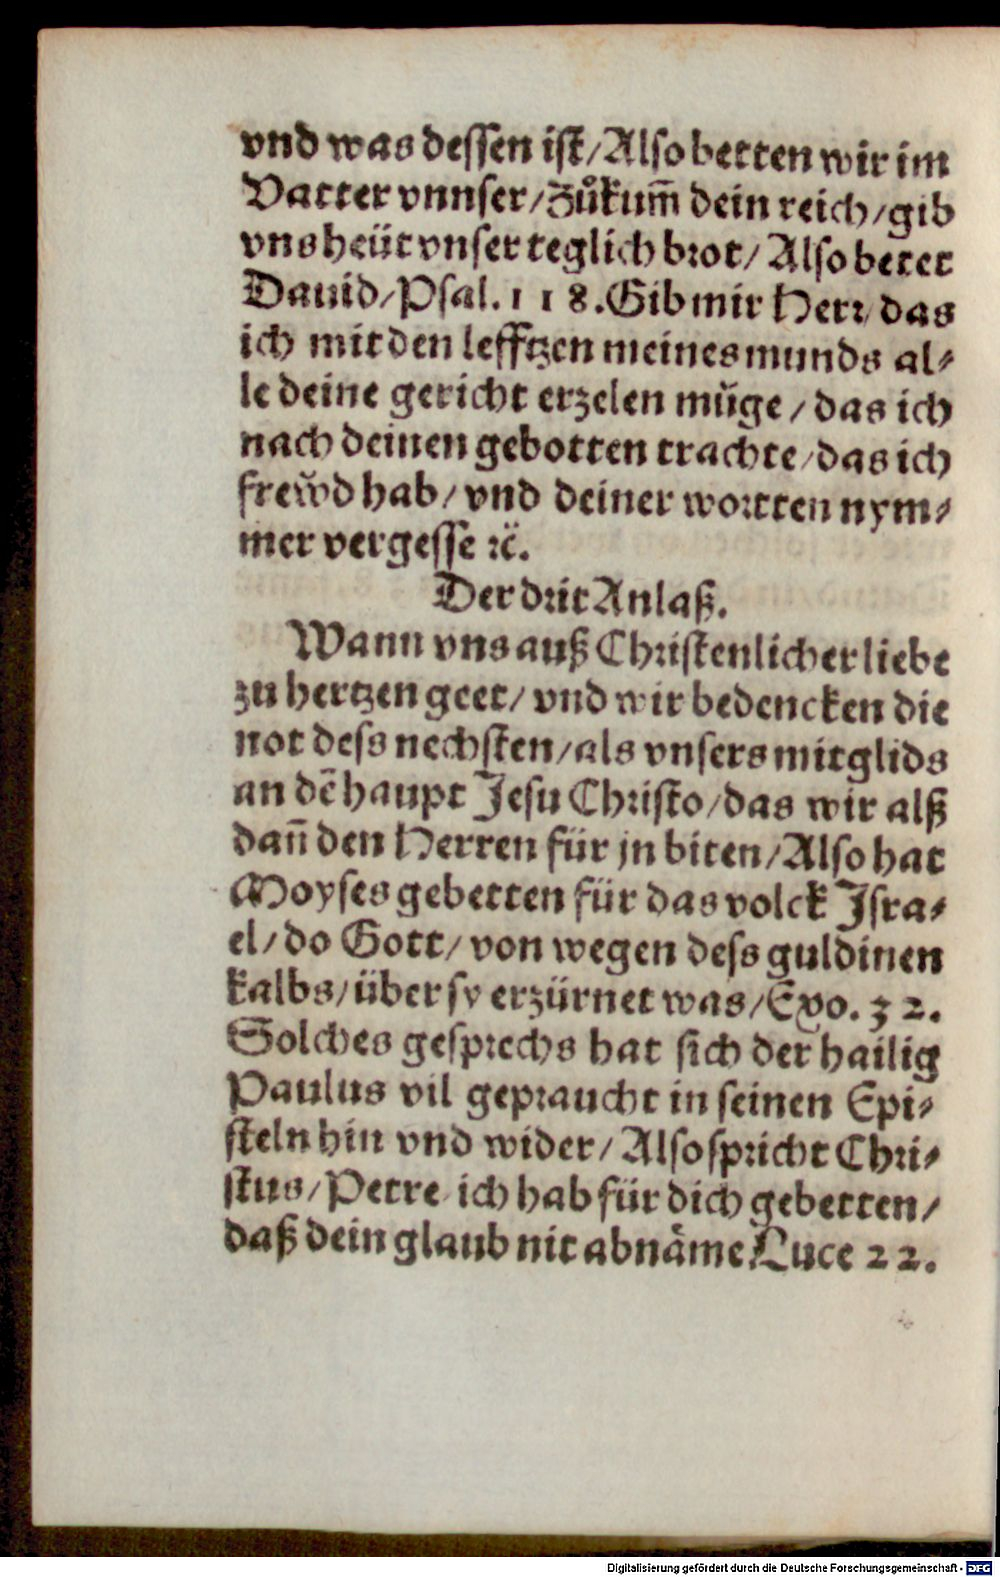 vnd was dessen ist/Also betten wir im
Vatter vnnser/Zůkum̃ dein reich/gib
vns heüt vnser teglich brot/Also betet
Dauid/Psal.118.Gib mir Herr/das
ich mit den lefftzen meines munds al⸗
le deine gericht erzelen mu̔ge/das ich
nach deinen gebotten trachte/das ich
frew̆d hab/vnd deiner wortten nym⸗
mer vergesse ⁊c̈.
Der drit Anlaß.
Wann vns auß Christenlicher liebe
zu hertzen geet/vnd wir bedencken die
not dess nechsten/als vnsers mitglids
an dē haupt Jesu Christo/das wir alß
dañ den Herren für jn biten/Also hat
Moyses gebetten für das volck Jsra⸗
el/do Gott/von wegen dess guldinen
kalbs/über sy erzürnet was/Exo.32.
Solches gesprechs hat sich der hailig
Paulus vil gepraucht in seinen Epi⸗
steln hin vnd wider/Also spricht Chri⸗
stus/Petre ich hab für dich gebetten/
daß dein glaub nit abnåme Luce 22.
Digitalisierung gefördert durch die Deutsche Forschungsgemeinschaft - DFG